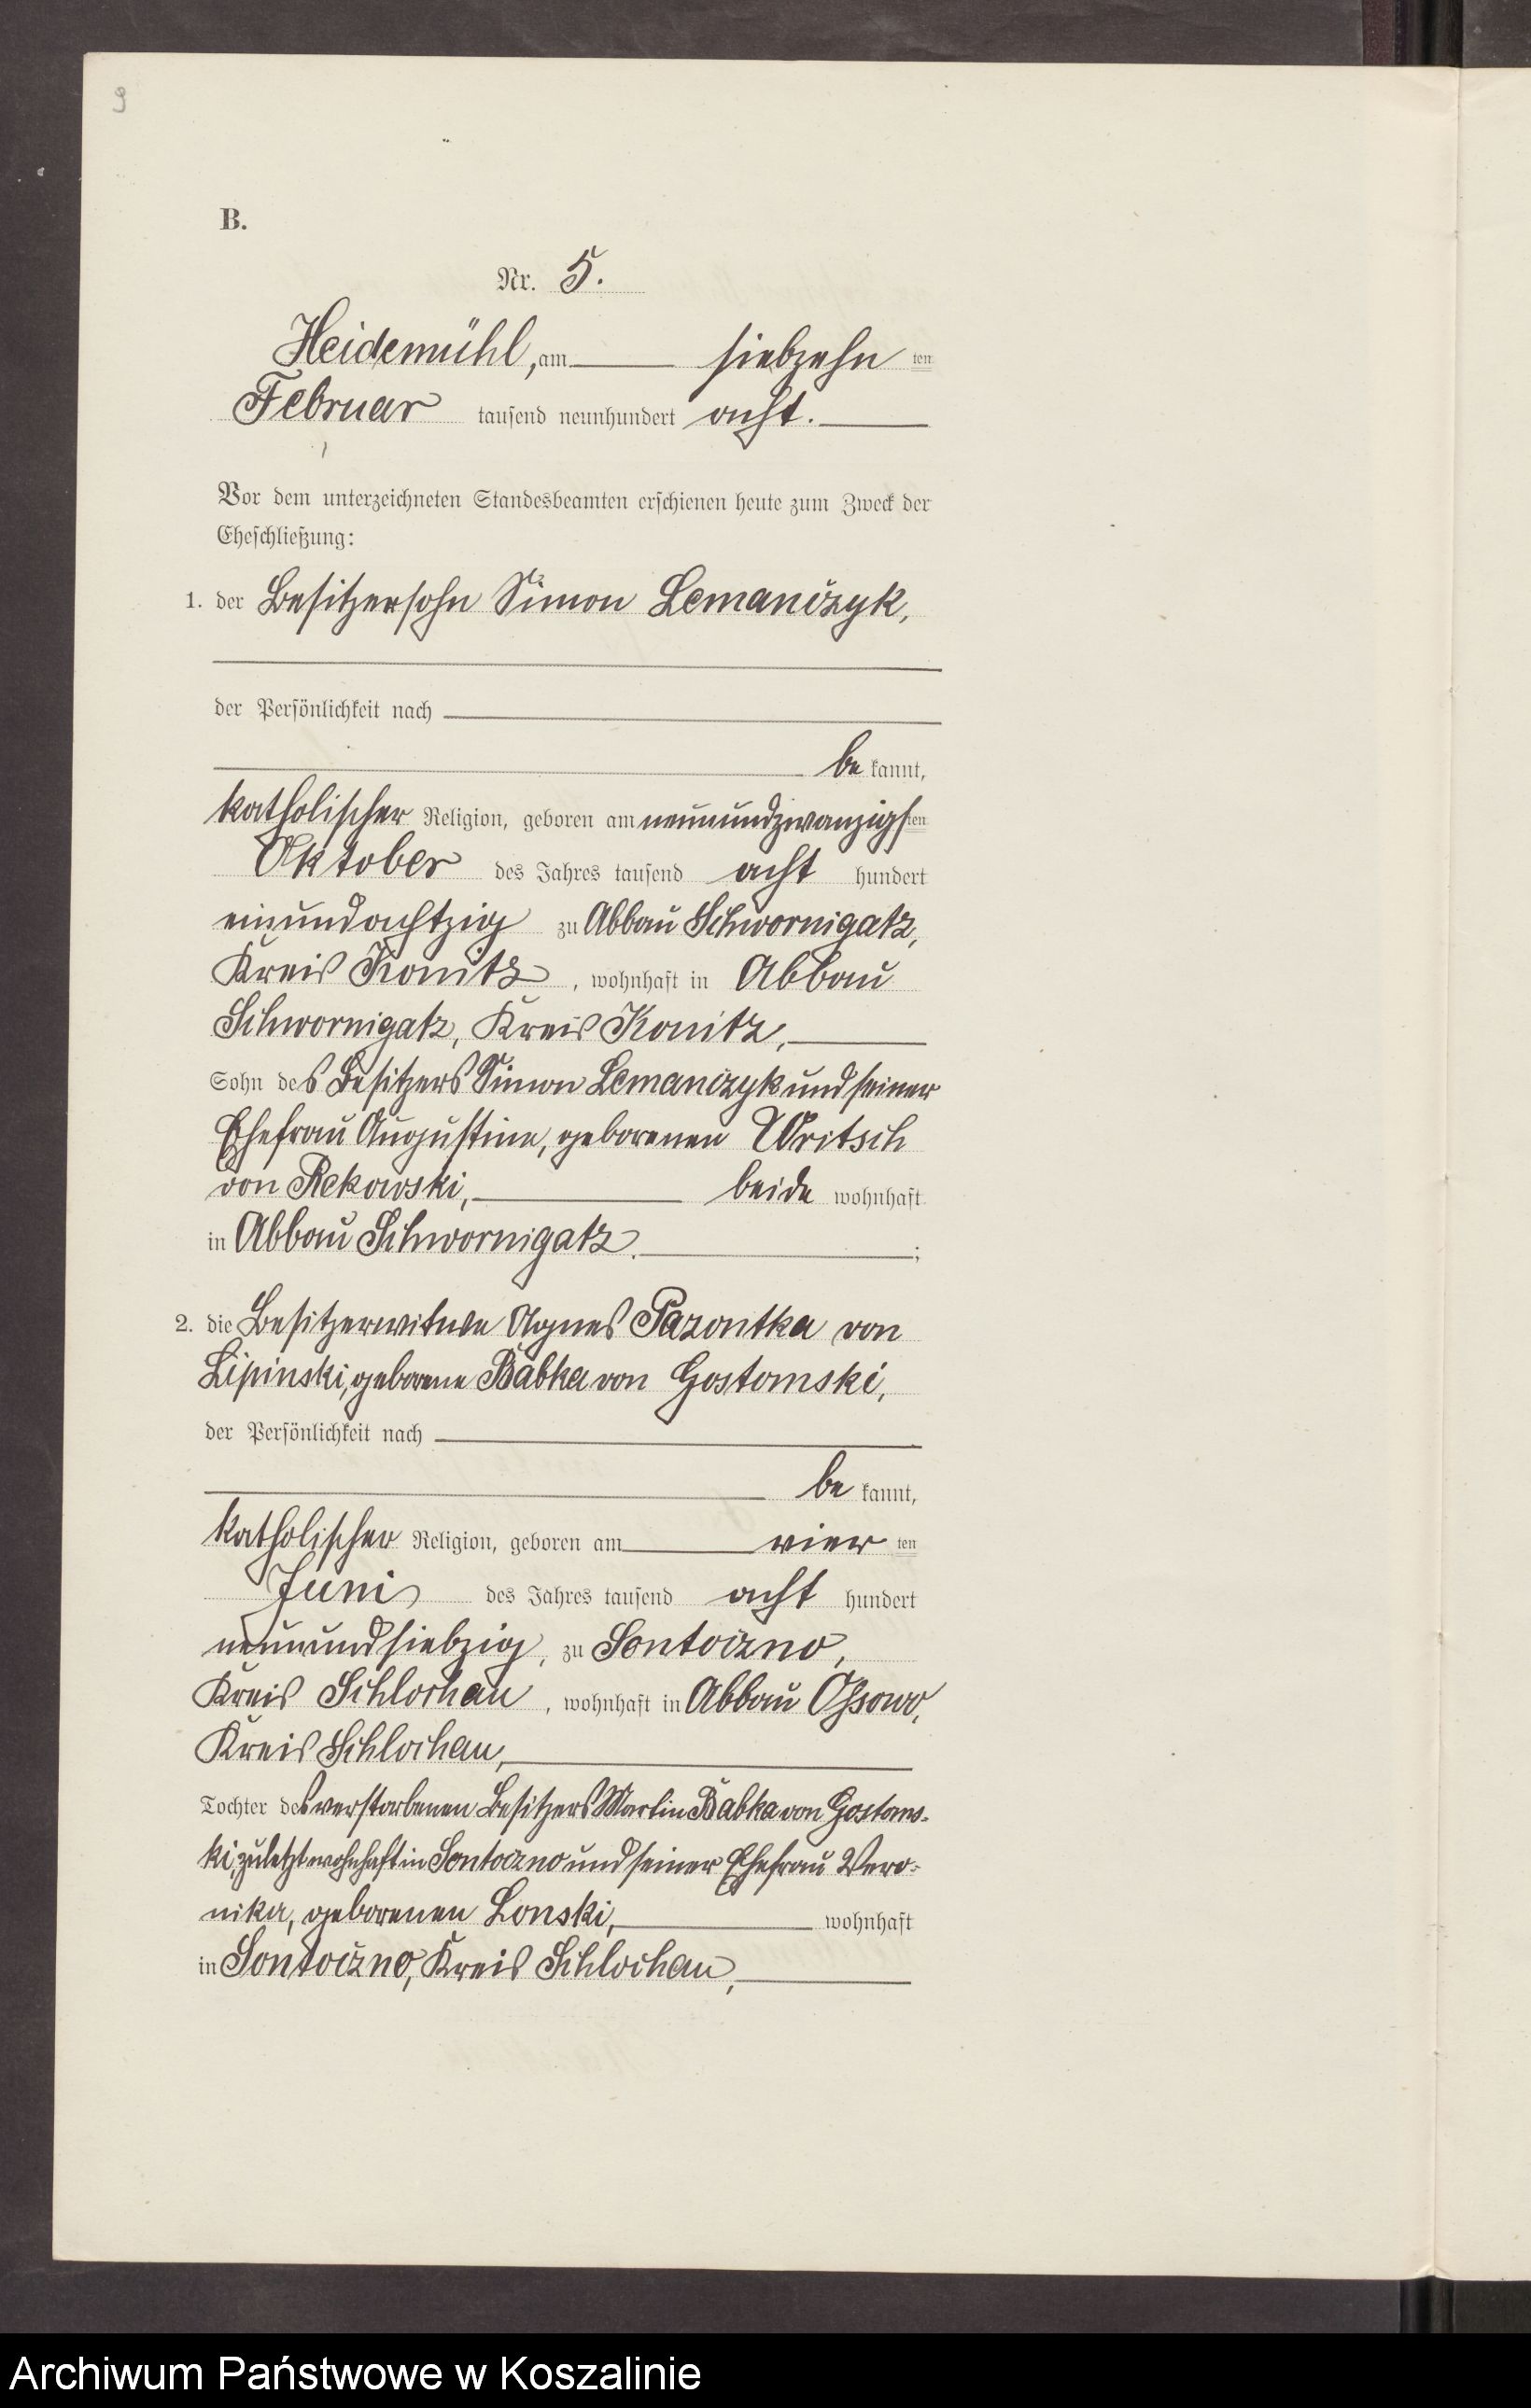 9
B.
Nr. 5.
Heidemühl, am siebzehn ten
Februar tausend neunhundert acht.
Vor dem unterzeichneten Standesbeamten erschienen heute zum Zweck der
Eheschließung:
1. der Besitzersohn Simon Lemańczyk,
der Persönlichkeit nach
be kannt,
katholischer Religion, geboren am neunundzwanzigsten
Oktober des Jahres tausend acht hundert
einundachtzig zu Abbau Schwornigatz,
Kreis Konitz, wohnhaft in Abbau
Schwornigatz, Kreis Konitz,
Sohn des Besitzers Simon Lemanczyk und seiner
Ehefrau Augustine, geborenen Writsch
von Rekowski, beide wohnhaft
in Abbau Schwornigatz. ;
2. die Besitzerwitwe Agnes Pazontka von
Lipinski, geborene Babka von Gostomski,
der Persönlichkeit nach
be kannt,
katholischer Religion, geboren am vier ten
Juni des Jahres tausend acht hundert
neunundsiebzig, zu Sontoczno,
Kreis Schlochau, wohnhaft in Abbau Ossowo,
Kreis Schlochau,
Tochter des verstorbenen Besitzers Martin Babka von Gostoms-
ki, zuletzt wohnhaft in Sontoczno und seiner Ehefrau Vero-
nika, geborenen Lonski, wohnhaft
in Sontoczno, Kreis Schlochau,
Archiwum Państwowe w Koszalinie